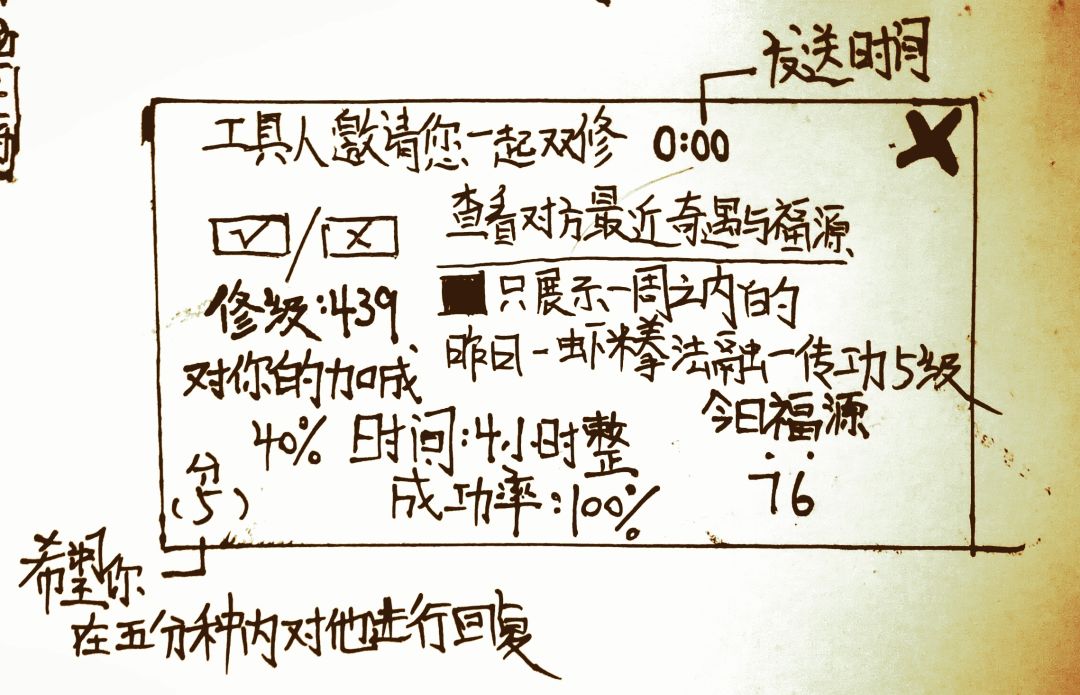 发送时间
工具人邀请您一起双修 0:00 X
√/× 查看对方最近奇遇与福源
只展示一周之内的
修级:439
昨日-虾米拳法融一传功5级
对你的加成
今日福源
40% 时间:4小时整
76
(5分)
成功率:100%
希望你
在五分种内对他进行回复